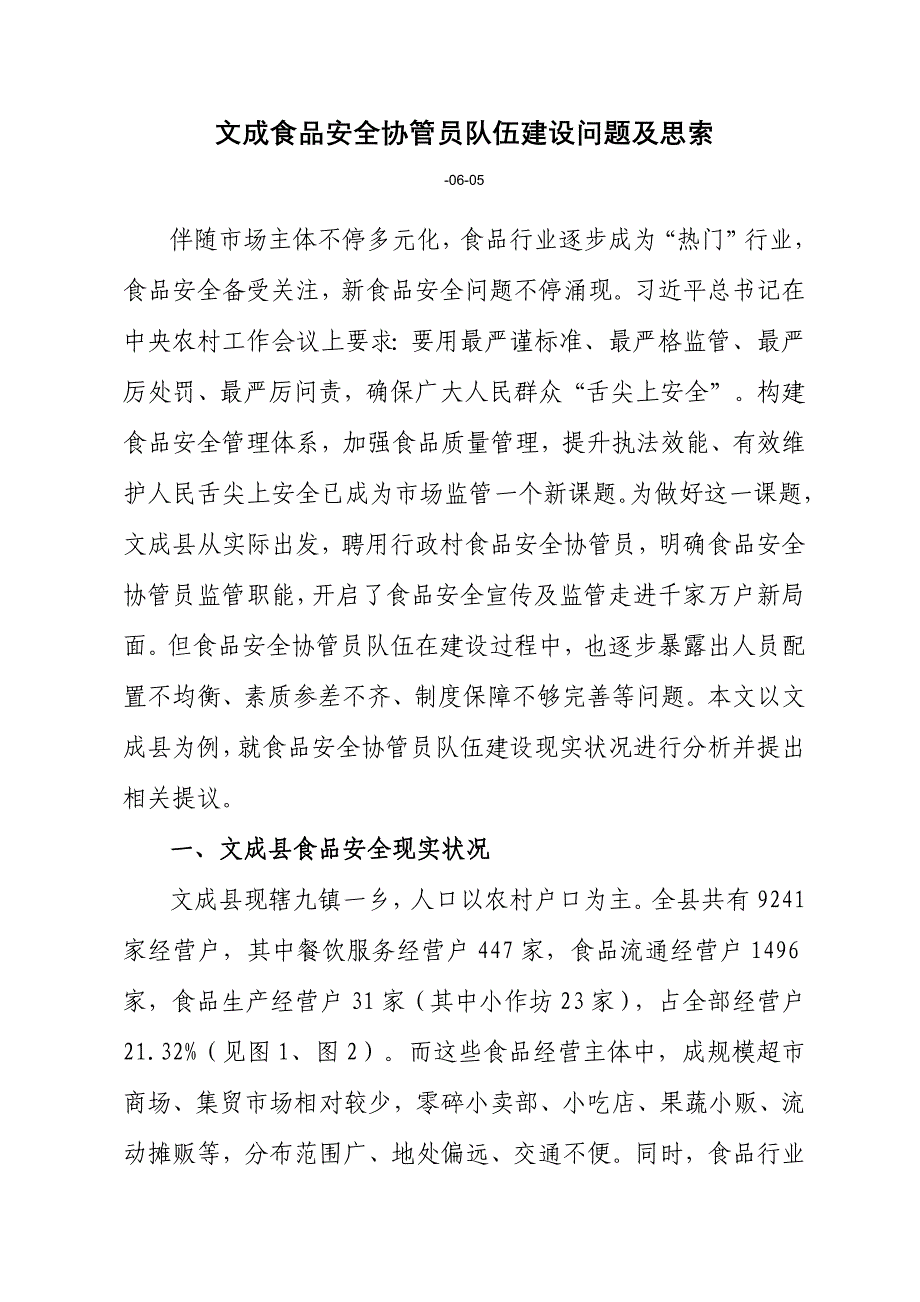 文成食品安全协管员队伍建设问题及思索
-06-05
伴随市场主体不停多元化，食品行业逐步成为“热门”行业，
食品安全备受关注，新食品安全问题不停涌现。习近平总书记在
中央农村工作会议上要求：要用最严谨标准、最严格监管、最严
厉处罚、最严厉问责，确保广大人民群众“舌尖上安全”。构建
食品安全管理体系，加强食品质量管理，提升执法效能、有效维
护人民舌尖上安全已成为市场监管一个新课题。为做好这一课题，
文成县从实际出发，聘用行政村食品安全协管员，明确食品安全
协管员监管职能，开启了食品安全宣传及监管走进千家万户新局
面。但食品安全协管员队伍在建设过程中，也逐步暴露出人员配
置不均衡、素质参差不齐、制度保障不够完善等问题。本文以文
成县为例，就食品安全协管员队伍建设现实状况进行分析并提出
相关提议。
一、文成县食品安全现实状况
文成县现辖九镇一乡，人口以农村户口为主。全县共有 9241
家经营户，其中餐饮服务经营户 447 家，食品流通经营户 1496
家，食品生产经营户 31 家（其中小作坊 23 家），占全部经营户
21.32%（见图 1、图 2）。而这些食品经营主体中，成规模超市
商场、集贸市场相对较少，零碎小卖部、小吃店、果蔬小贩、流
动摊贩等，分布范围广、地处偏远、交通不便。同时，食品行业